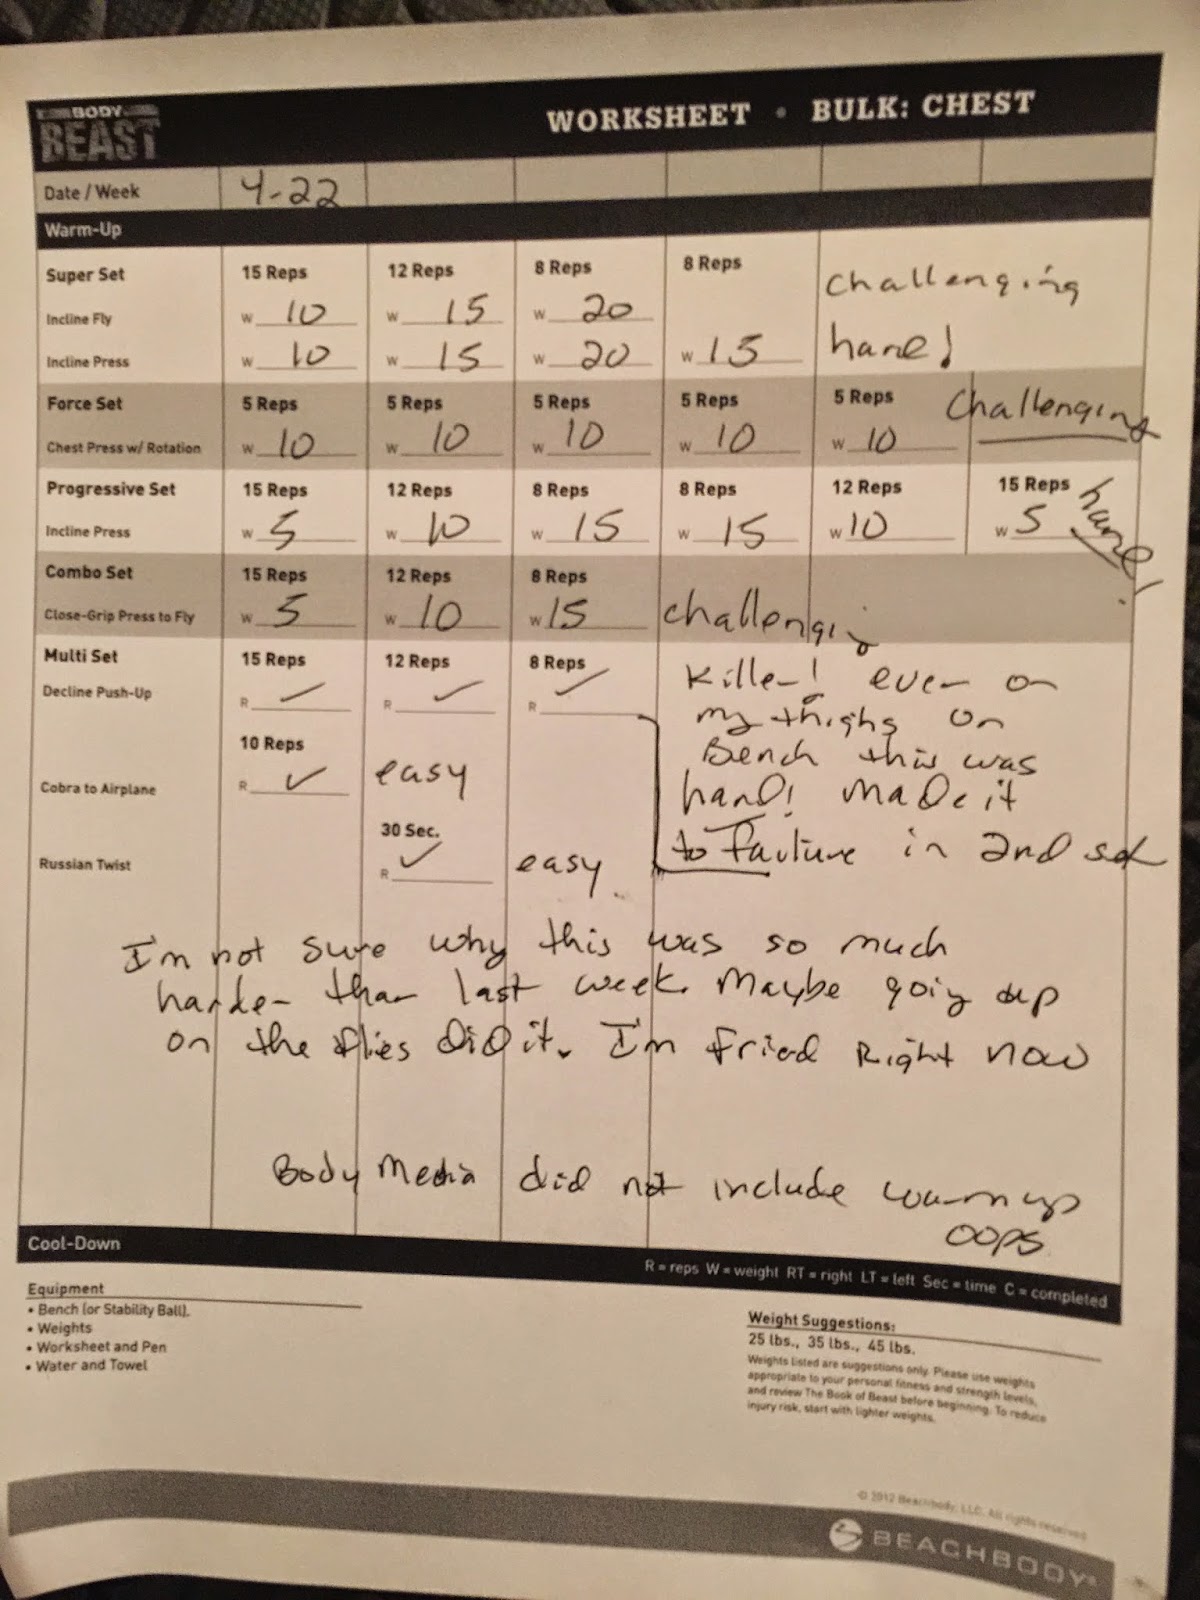 BODY
BEAST
WORKSHEET • BULK: CHEST
Date / Week 4-22
Warm-Up
Super Set 15 Reps 12 Reps 8 Reps 8 Reps challenging
Incline Fly W 10 W 15 W 20
Incline Press W 10 W 15 W 20 W 15 hard!
Force Set 5 Reps 5 Reps 5 Reps 5 Reps 5 Reps Challenging
Chest Press w/ Rotation W 10 W 10 W 10 W 10 W 10
Progressive Set 15 Reps 12 Reps 8 Reps 8 Reps 12 Reps 15 Reps hard!
Incline Press W 5 W 10 W 15 W 15 W 10 W 5
Combo Set 15 Reps 12 Reps 8 Reps
Close-Grip Press to Fly W 5 W 10 W 15 challenging
Multi Set 15 Reps 12 Reps 8 Reps
Decline Push-Up R ✓ R ✓ R ✓
Killer! even on
my thighs on
Bench this was
hard! Made it
to failure in 2nd set
10 Reps
Cobra to Airplane R ✓ easy
30 Sec.
Russian Twist R ✓ easy
I'm not sure why this was so much
harder than last week. Maybe going up
on the flies did it. I'm fried Right now
Body Media did not include warm up
oops
Cool-Down
R = reps W = weight RT = right LT = left Sec = time C = completed
Equipment
• Bench (or Stability Ball).
• Weights
• Worksheet and Pen
• Water and Towel
Weight Suggestions:
25 lbs., 35 lbs., 45 lbs.
Weights listed are suggestions only. Please use weights
appropriate to your personal fitness and strength levels,
and review The Book of Beast before beginning. To reduce
injury risk, start with lighter weights.
© 2012 Beachbody, LLC. All rights reserved.
BEACHBODY®